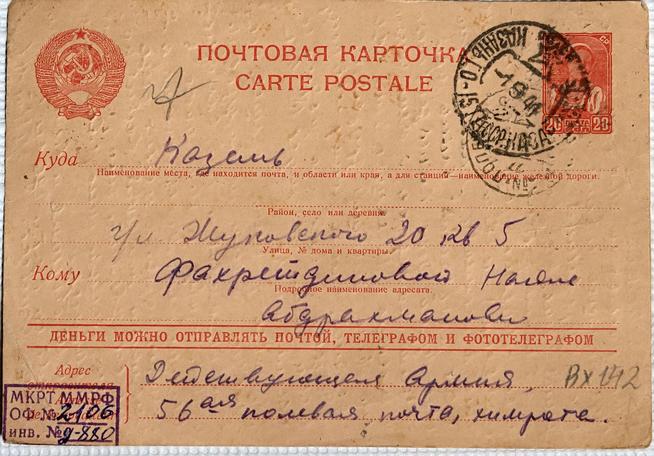 ПОЧТОВАЯ КАРТОЧКА
CARTE POSTALE
КАЗАНЬ
20 20
Куда Казань
Наименование места, где находится почта, и области или края, а для станций—наименование железной дороги.
Район, село или деревня.
ул Жуковского 20 кв 5
Улица, № дома и квартиры.
Кому Фахретдиновой Нагиме
Подробное наименование адресата.
Абдрахмановне
ДЕНЬГИ МОЖНО ОТПРАВЛЯТЬ ПОЧТОЙ, ТЕЛЕГРАФОМ И ФОТОТЕЛЕГРАФОМ
Адрес отправителя
Действующая Армия,
56ая полевая почта, химрота.
Вх 142
МКРТ ММРФ
ОФ № 2106
инв. № д-880